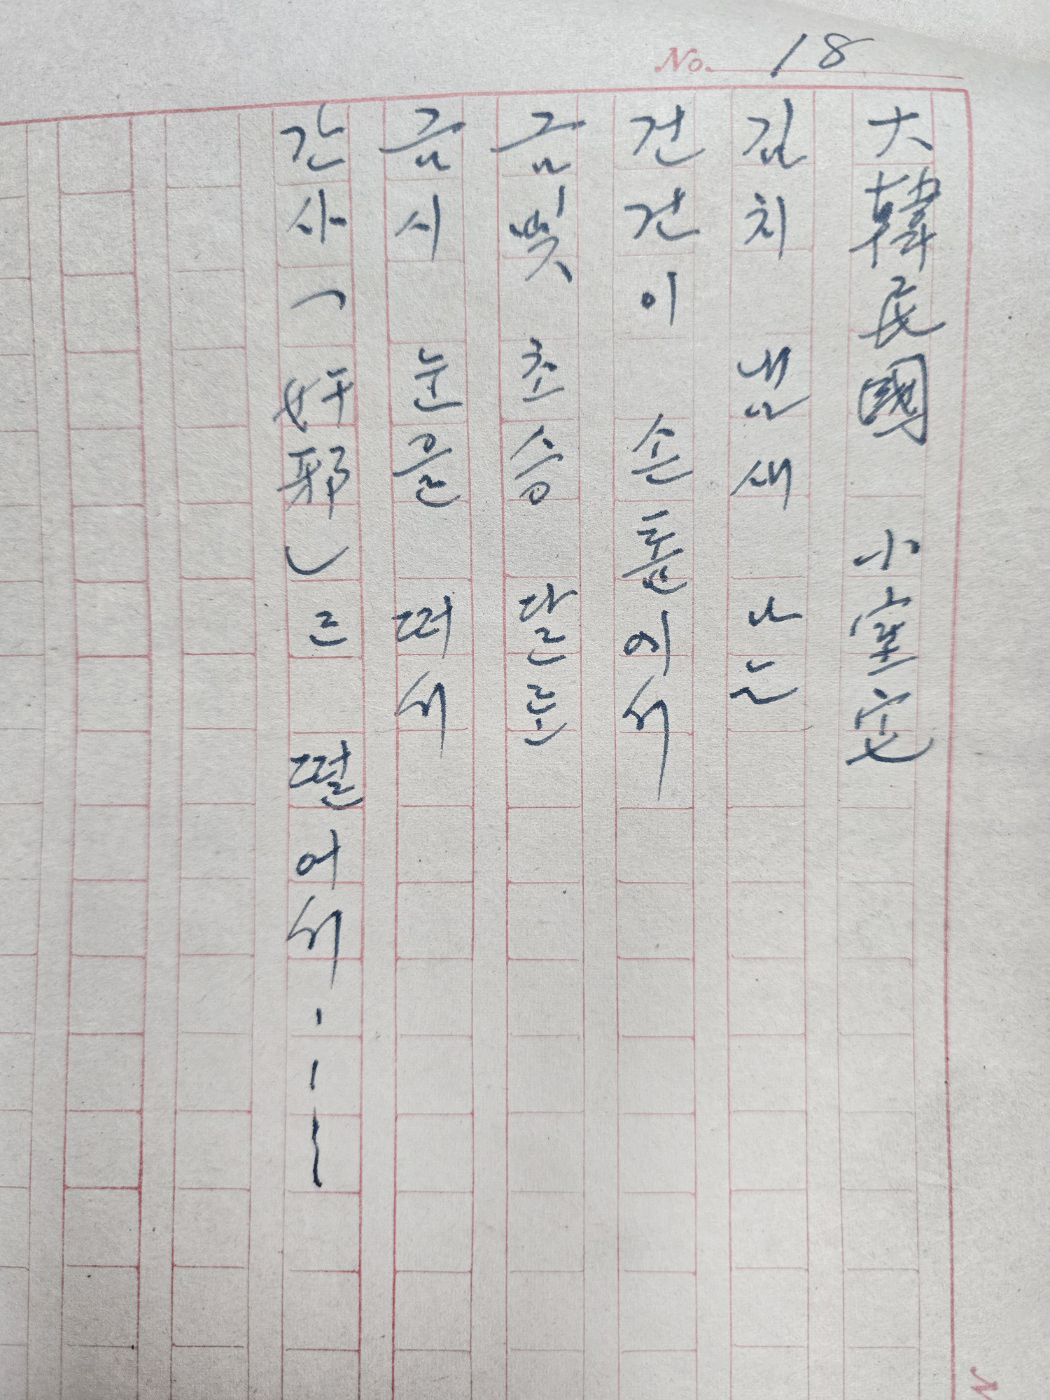 No. 18
大韓民國 小室宅
김치 냄새 나는
건건이 손톱에서
금빛 초승 달로
금시 눈을 떠서
간사(奸邪)로 떨어서·ㅣㅡ